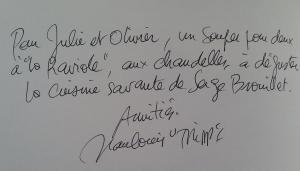 Pour Julie et Olivier, un souper pour deux
à "la Raviole", aux chandelles, à déguster
la cuisine savante de Serge Brouillet.
Amitiés.